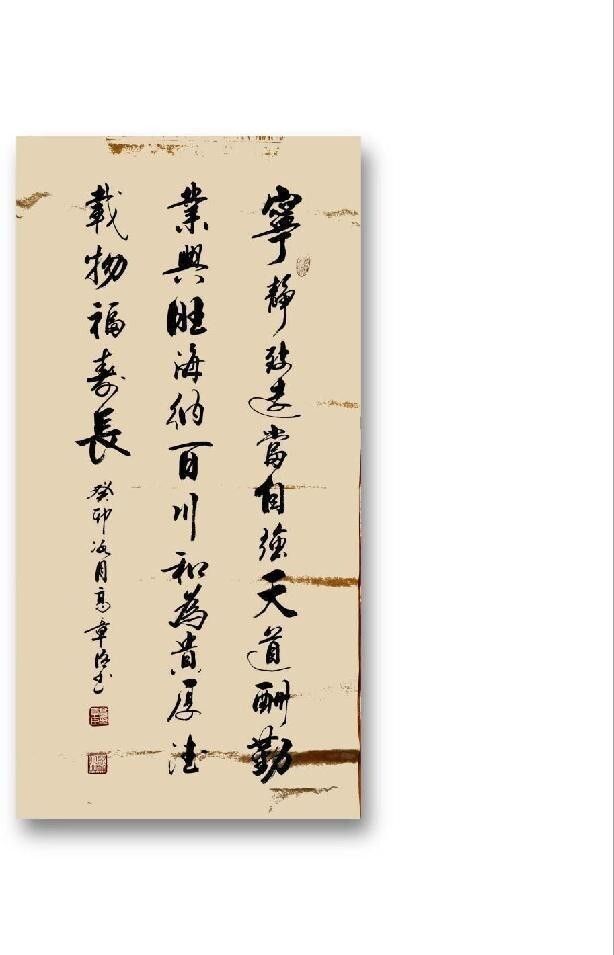 寧靜致遠當自強天道酬勤
業興旺海納百川和為貴厚德
載物福壽長
癸卯 月高章 書